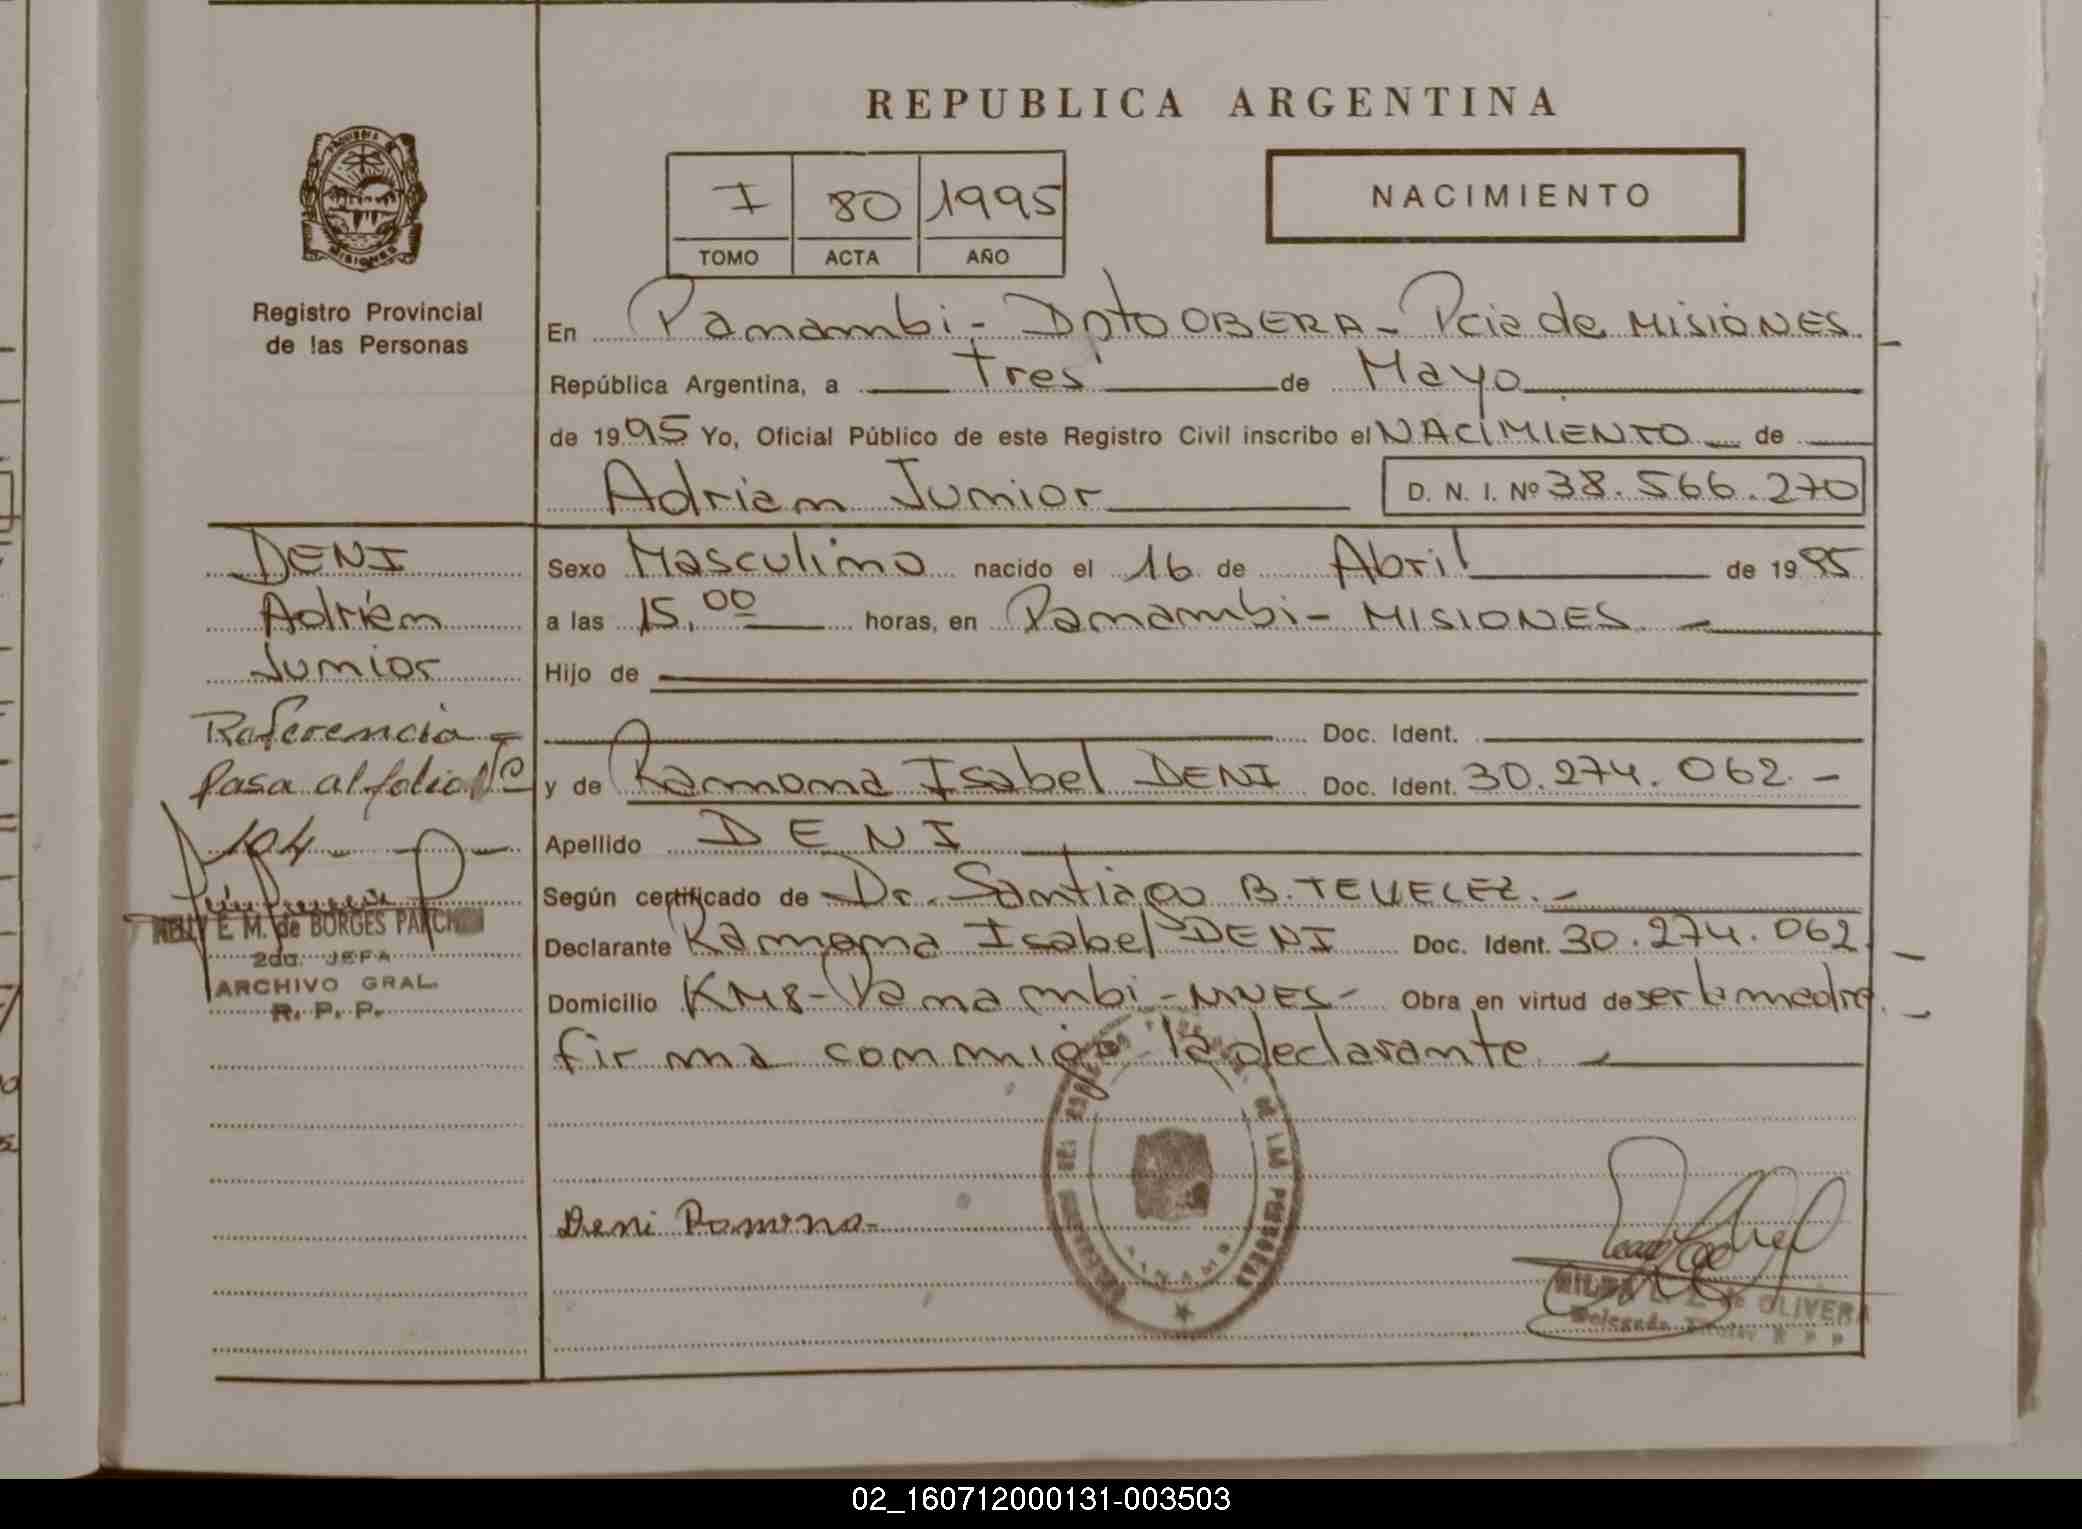 REPUBLICA ARGENTINA
I 80 1995
TOMO ACTA AÑO
NACIMIENTO
PROVINCIA
MISIONES
Registro Provincial
de las Personas
En Panambi - Dpto OBERA - Pcia de MISIONES.
República Argentina, a tres de Mayo
de 1995 Yo, Oficial Público de este Registro Civil inscribo el NACIMIENTO de
Adrian Junior D. N. I. Nº 38.566.270
DENI
Adrian
Junior
Referencia =
Pasa al folio Nº
104
E. M. de BORGES
2da. JEFA
ARCHIVO GRAL.
R. P. P.
Sexo Masculino nacido el 16 de Abril de 1995
a las 15,00 horas, en Panambi - MISIONES. -
Hijo de
Doc. Ident.
y de Ramona Isabel DENI Doc. Ident. 30.274.062. -
Apellido DENI
Según certificado de Dr. Santiago B. -
Declarante Ramona Isabel DENI Doc. Ident. 30.274.062
Domicilio KM8 - Panambi - MNES - Obra en virtud de ser la madre
firma conmigo la declarante -
DE LAS PERSONAS
Deni Ramona -
de OLIVERA
Delegada Titular R P P
02_160712000131-003503